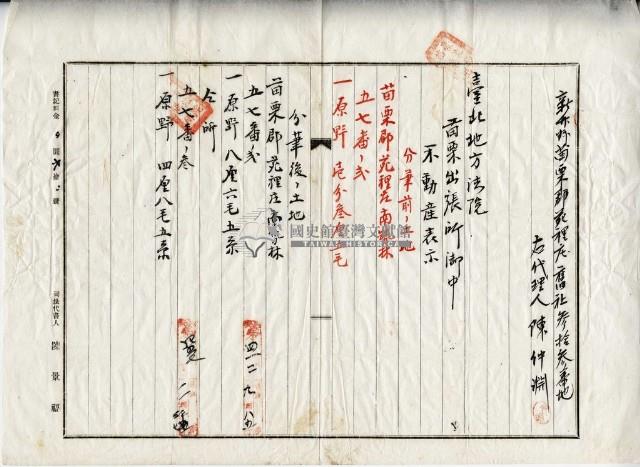 新竹州苗栗郡苑裡庄舊社參拾參番地
右代理人 陳仲淵
臺北地方法院
苗栗出張所御中
不動産表示
分筆前ノ土地
苗栗郡苑裡庄南勢林
五七番ノ弐
一原野 壱分參
分筆後ノ土地
苗栗郡苑裡庄南勢林
五七番ノ弐
一原野 八厘六毛五糸
仝所
五七番ノ參
一原野 四厘八毛五糸
書記料金
司法代書人 陸景福
國史館臺灣文獻館
TAIWAN HISTORICA